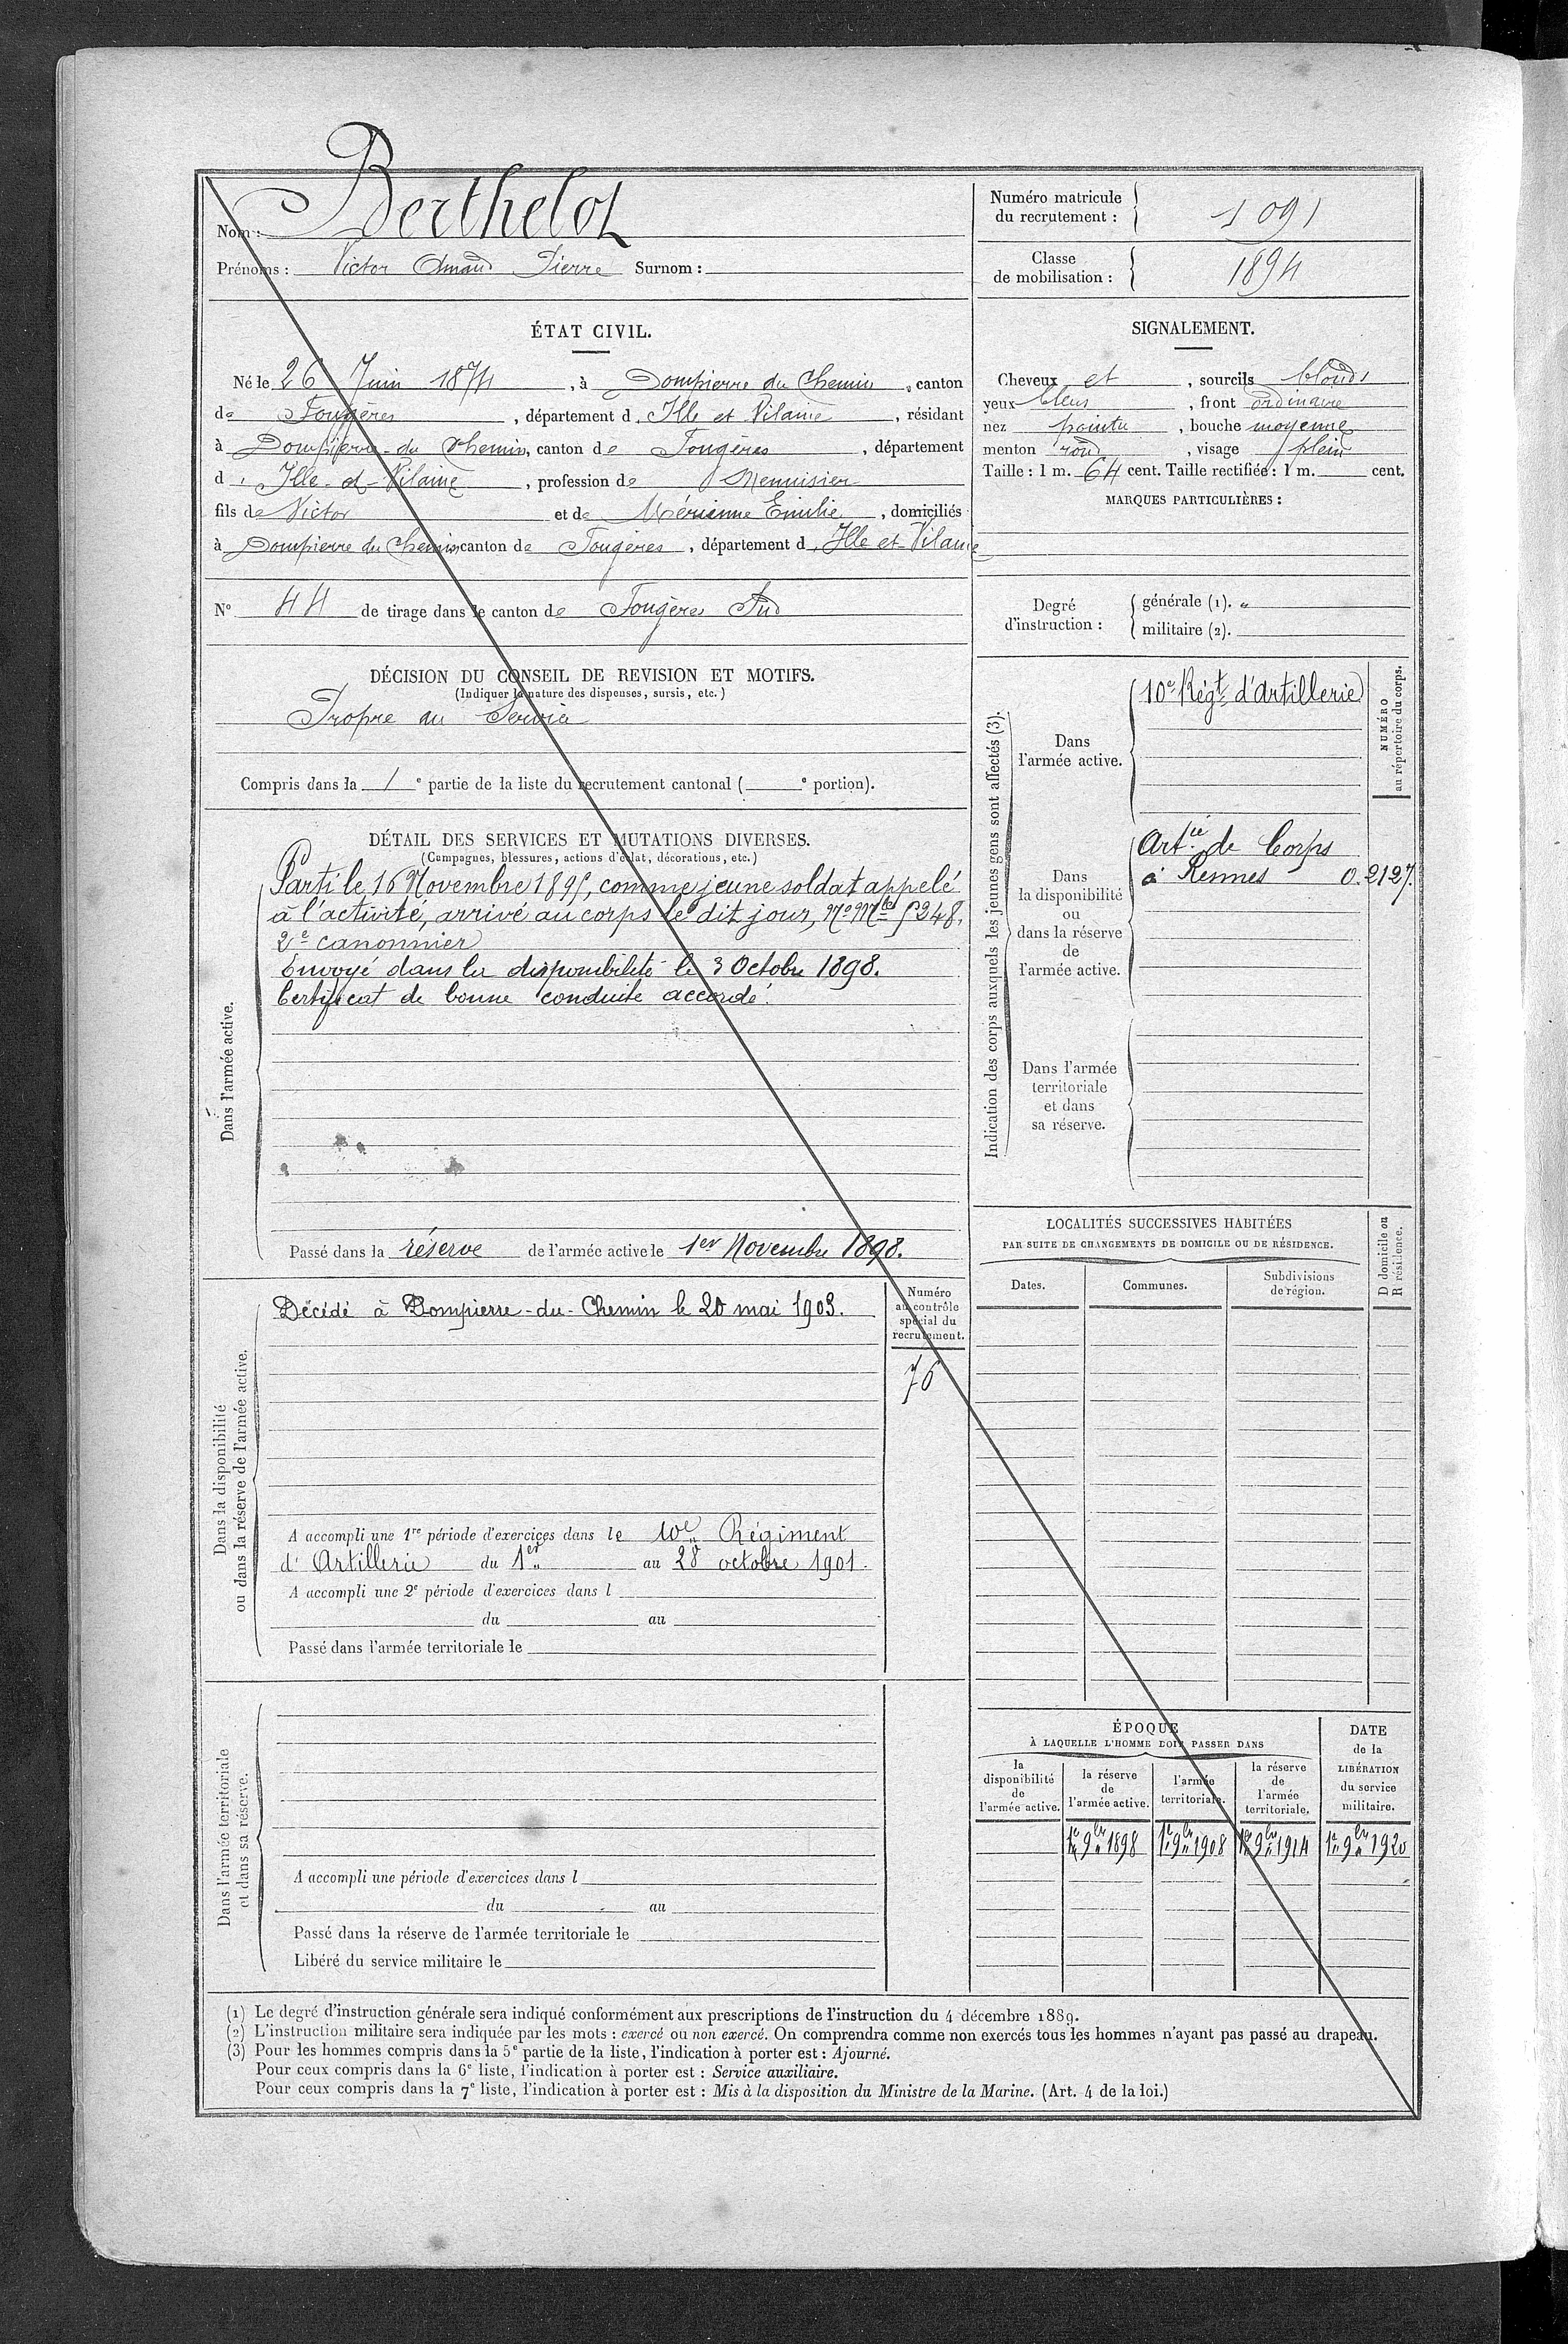 Nom : Berthelot
Prénoms : Victor Amand Pierre Surnom :
Numéro matricule
du recrutement : 1091
Classe
de mobilisation : 1894
ÉTAT CIVIL.
Né le 26 Juin 1874, à Dompierre du Chemin, canton
de Fougères, département d'Ille et Vilaine, résidant
à Dompierre-du Chemin, canton de Fougères, département
d'Ille-et-Vilaine, profession de Menuisier
fils de Victor et de Émilie, domiciliés
à Dompierre du Chemin canton de Fougères, département d'Ille et Vilaine
N° 44 de tirage dans le canton de Fougères Sud
SIGNALEMENT.
Cheveux et, sourcils blonds
yeux bleus, front ordinaire
nez pointu, bouche moyenne
menton rond, visage plein
Taille : 1 m. 64 cent. Taille rectifiée : 1 m. cent.
MARQUES PARTICULIÈRES :
Degré
d'instruction :
générale (1). "
militaire (2).
DÉCISION DU CONSEIL DE REVISION ET MOTIFS.
(Indiquer la nature des dispenses, sursis, etc.)
Propre au Service
Compris dans la 1e partie de la liste du recrutement cantonal ( e portion).
DÉTAIL DES SERVICES ET MUTATIONS DIVERSES.
(Campagnes, blessures, actions d'éclat, décorations, etc.)
Dans l'armée active.
Parti le 16 Novembre 1895, comme jeune soldat appelé
à l'activité, arrivé au corps le dit jour, No Mle 5248,
2e canonnier
Envoyé dans la disponibilité le 3 Octobre 1898.
Certificat de bonne conduite accordé.
Passé dans la réserve de l'armée active le 1er Novembre 1898.
Indication des corps auxquels les jeunes gens sont affectés (3).
NUMÉRO
au répertoire du corps.
Dans
l'armée active.
10e Régt d'Artillerie
Dans
la disponibilité
ou
dans la réserve
de
l'armée active.
Artie de Corps
à Rennes 0.2127.
Dans l'armée
territoriale
et dans
sa réserve.
Dans la disponibilité
ou dans la réserve de l'armée active.
Décédé à Dompierre-du-Chemin le 20 mai 1903.
Numéro
au contrôle
spécial du
recrutement.
76
A accompli une 1re période d'exercices dans le 10e Régiment
d'Artillerie du 1er au 28 octobre 1901.
A accompli une 2e période d'exercices dans l
du au
Passé dans l'armée territoriale le
LOCALITÉS SUCCESSIVES HABITÉES
PAR SUITE DE CHANGEMENTS DE DOMICILE OU DE RÉSIDENCE.
D domicile ou
R résidence.
Dates. Communes. Subdivisions
de région.
Dans l'armée territoriale
et dans sa réserve.
A accompli une période d'exercices dans l
du au
Passé dans la réserve de l'armée territoriale le
Libéré du service militaire le
ÉPOQUE
À LAQUELLE L'HOMME DOIT PASSER DANS
la
disponibilité
de
l'armée active.
la réserve
de
l'armée active.
l'armée
territoriale.
la réserve
de
l'armée
territoriale.
DATE
de la
LIBÉRATION
du service
militaire.
1er 9bre 1898 1er 9bre 1908 1er 9bre 1914 1er 9bre 1920
(1) Le degré d'instruction générale sera indiqué conformément aux prescriptions de l'instruction du 4 décembre 1889.
(2) L'instruction militaire sera indiquée par les mots : exercé ou non exercé. On comprendra comme non exercés tous les hommes n'ayant pas passé au drapeau.
(3) Pour les hommes compris dans la 5e partie de la liste, l'indication à porter est : Ajourné.
Pour ceux compris dans la 6e liste, l'indication à porter est : Service auxiliaire.
Pour ceux compris dans la 7e liste, l'indication à porter est : Mis à la disposition du Ministre de la Marine. (Art. 4 de la loi.)